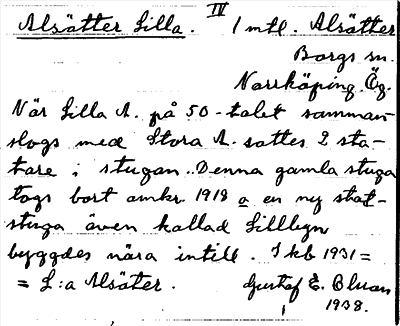 Alsätter Lilla. IV 1 mtl. Alsätter
Borgs sn.
Norrköping. Ög.
När Lilla A. på 50-talet samman-
slogs med Stora A. sattes 2 sta-
tare i stugan. Denna gamla stuga
togs bort omkr. 1918 o en ny stat-
stuga även kallad Lillbyn
byggdes nära intill. I kb 1931 =
= L:a Alsäter. Gustaf E. Bluan
1938.